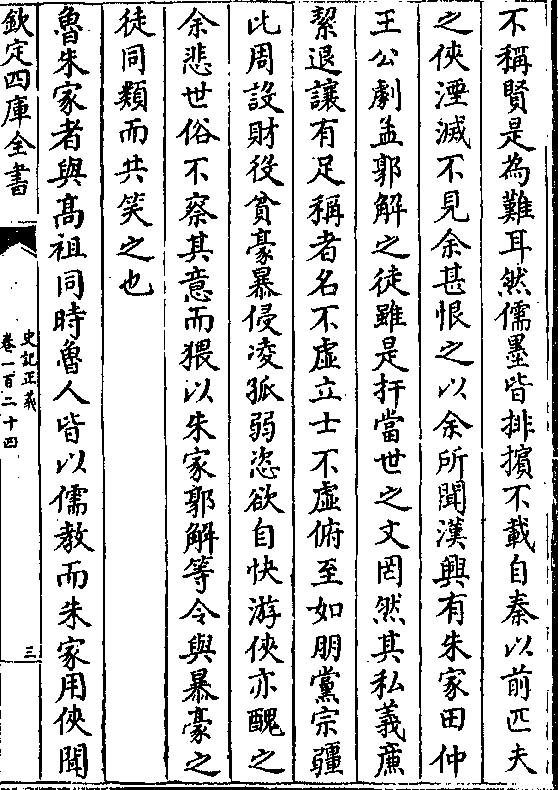 不稱賢是為難耳然儒墨皆排擯不載自秦以前匹夫
之俠湮滅不見余甚恨之以余所聞漢興有朱家田仲
王公劇孟郭解之徒雖是扞當世之文罔然其私義㢘
絜退讓有足稱者名不虛立士不虛俯至如朋黨宗疆
比周設財役貧豪暴侵凌孤弱恣欲自快游俠亦醜之
余悲世俗不察其意而猥以朱家郭解等令與暴豪之
徒同類而共笑之也
魯朱家者與髙祖同時魯人皆以儒教而朱家用俠聞
欽定四庫全書
史記正義
卷一百二十四
三